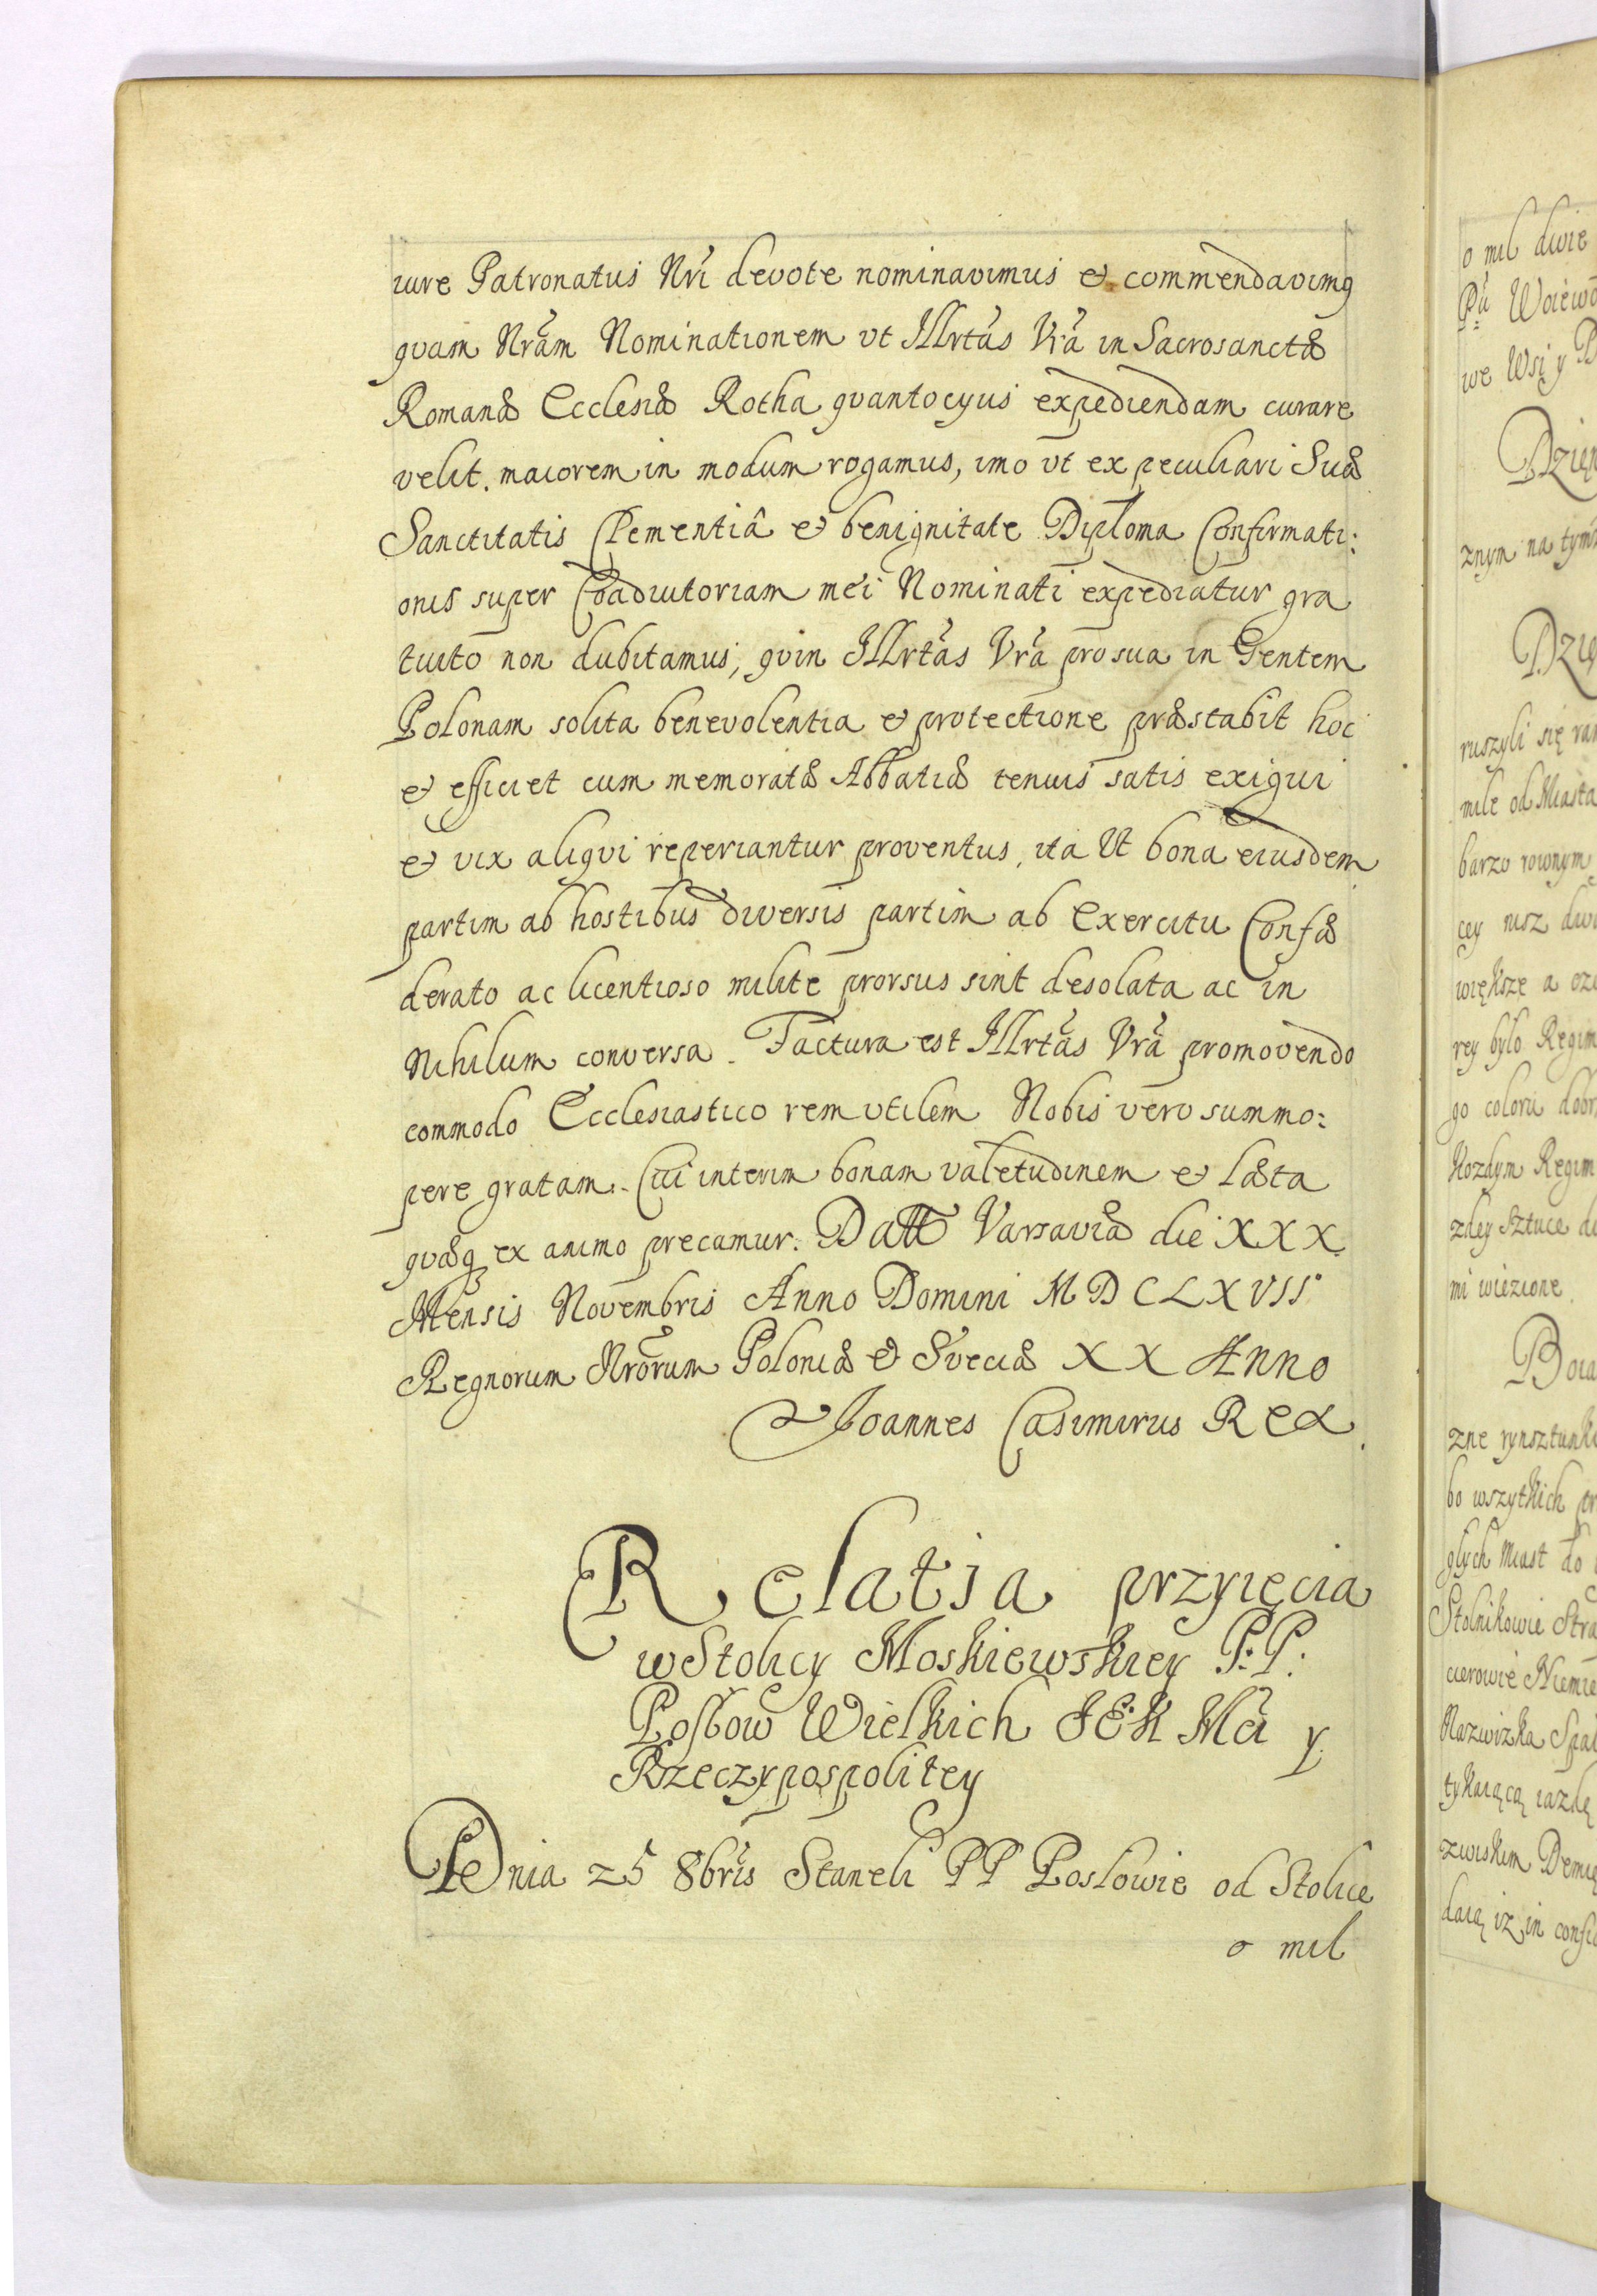 iure Patronatus Nri devote nominavimus et commendavimq
quam Nram Nominationem ut Illrtas Vra in Sacrosanctæ
Romanæ Ecclesiæ Rotha quantocyus expediendam curare
velit. maiorem in modum rogamus, imo ut ex peculiari Suæ
Sanctitatis Clementiâ et benignitate Diploma Confirmati:
onis super Coadiutoriam mei Nominati expediatur gra
tuito non dubitamus, quin Illrtas Vra pro sua in Gentem
Polonam solita benevolentia et protectione præstabit hoc
et efficiet cum memoratæ Abbatiæ tenuis satis exigui
et vix aliqui reperiantur proventus, ita Ut bona eiusdem
partim ab hostibus diversis partim ab Exercitu Confæ
derato ac licentioso milite prorsus sint desolata ac in
Nihilum conversa. Factura est Illrtas Vra promovendo
commodo Ecclesiastico rem utilem Nobis vero summo:
pere gratam. Cui interim bonam valetudinem et læta
quæq ex animo precamur. Datt Varsaviæ die XXX.
Mensis Novembris Anno Domini MDCLXVII
Regnorum Nrorum Poloniæ et Sveciæ XX Anno
Joannes Casimirus Rex.
Relatia przyięcia
w Stolicy Moskiewskiey P: P:
Posłow Wielkich JEK Mci y
Rzeczypospolitey
Dnia 25 8bris Staneli PP Posłowie od Stolice
o mil
o mil dwie
we Wsi y
znym na tym
ruszyli się
mile od Miasta
barzo rownym
cey nisz
większe a
rey bylo Regim
go coloru dobr
Kozdym Regim
zdey Sztuce
mi wiezione.
zne rynsztunk
bo wszytkich
glych Miast do
Stolnikowie Stra
Nazwizka
tykaiącą iazdę
zwiskim
daią iz in